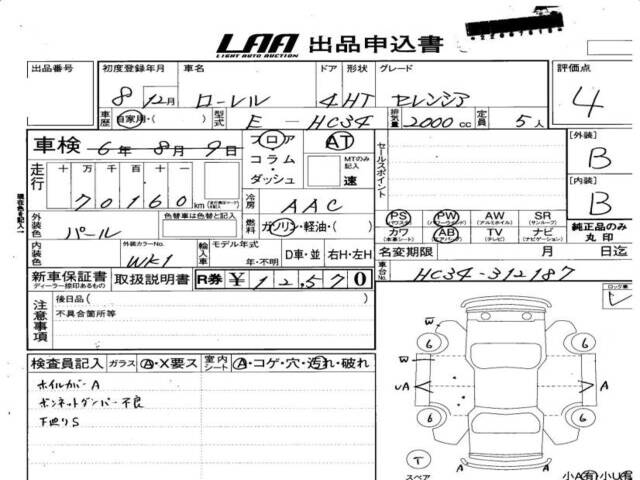 LAA 出品申込書
LIGHT AUTO AUCTION
出品番号 初度登録年月 車名 ドア 形状 グレード 評価点
8 12月 ローレル 4 HT セレンシア 4
車歴 自家用・( ) 型式 E - HC34 排気量 2000 cc 定員 5人
車検 6年 8月 9日 フロア AT
コラム・ MTのみ記入
ダッシュ 速
セールスポイント
[外装]
B
[内装]
B
走行 十 万 千 百 十 一
70160 km
冷房 AAC
現在色を記入
外装色 パール 色替車は色替と記入
燃料 ガソリン・軽油・( )
PS PW AW SR
(パワステ) (パワーウィンド) (アルミホイル) (サンルーフ)
カワ AB TV ナビ
(本革シート) (エアバック) (テレビ) (ナビゲーション)
純正品のみ丸印
内装色 外装カラーNo. WK1 輸入車 モデル年式 年・不明 D車・並 右H・左H
名変期限 月 日迄
新車保証書 ディーラー捺印あるもの 取扱説明書 R券 ¥ 12,570
車台No. HC34-312187
注意事項 後日品( )
不具合箇所等
ロック番
レ
検査員記入 ガラス A・X要ス 室内シート A・コゲ・穴・汚れ・破れ
ホイルカバーA
ボンネットダンパー不良
下廻りS
W
6 6
W
UA A
6 6
T
スペア
A A
小A(有)・小U(有